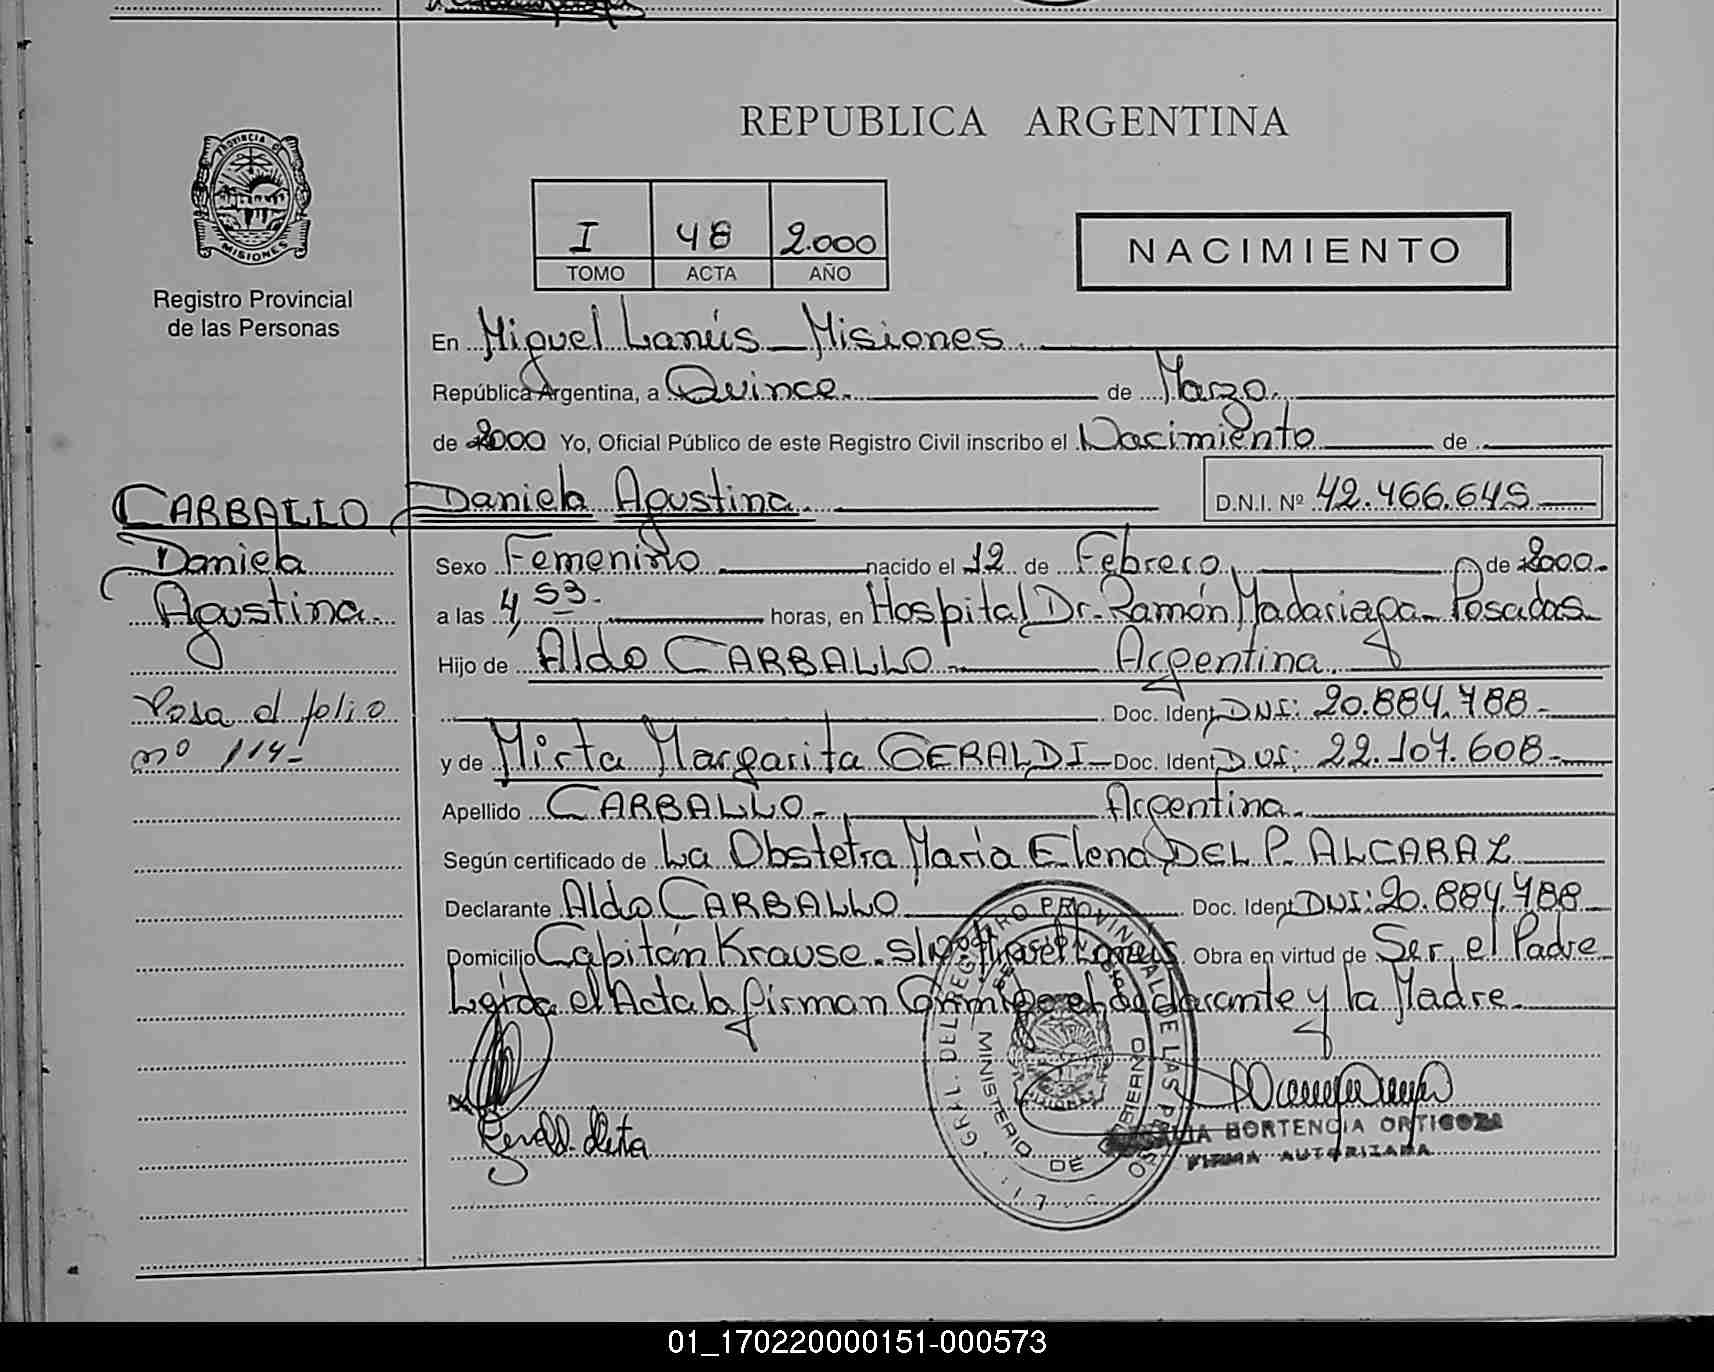 REPUBLICA ARGENTINA
PROVINCIA DE
MISIONES
Registro Provincial
de las Personas
I 48 2.000
TOMO ACTA AÑO
NACIMIENTO
En Miguel Lanús - Misiones
República Argentina, a Quince de Marzo
de 2000 Yo, Oficial Público de este Registro Civil inscribo el Nacimiento de
CARBALLO Daniela Agustina D.N.I. Nº 42.466.645
Daniela
Agustina.
Sexo Femenino nacido el 12 de Febrero de 2000.
a las 4,53. horas, en Hospital Dr. Ramón Madariaga - Posadas
Hijo de Aldo CARBALLO Argentina
Pasa al folio
nº 114-
Doc. Ident. DNI: 20.884.788-
y de Mirta Margarita GERALDI - Doc. Ident. DNI: 22.107.608-
Apellido CARBALLO - Argentina.
Según certificado de La Obstetra María Elena DEL P. ALCARAZ
Declarante Aldo CARBALLO Doc. Ident. DNI: 20.884.788
Domicilio Capitán Krause. s/nº. Miguel Lanús. Obra en virtud de Ser el Padre
Leída el Acta la firman Conmigo el declarante y la Madre.
REGISTRO PROVINCIAL DE LAS
MINISTERIO DE GOBIERNO
MISIONES
HORTENCIA ORTIGOZA
FIRMA AUTORIZADA
01_170220000151-000573